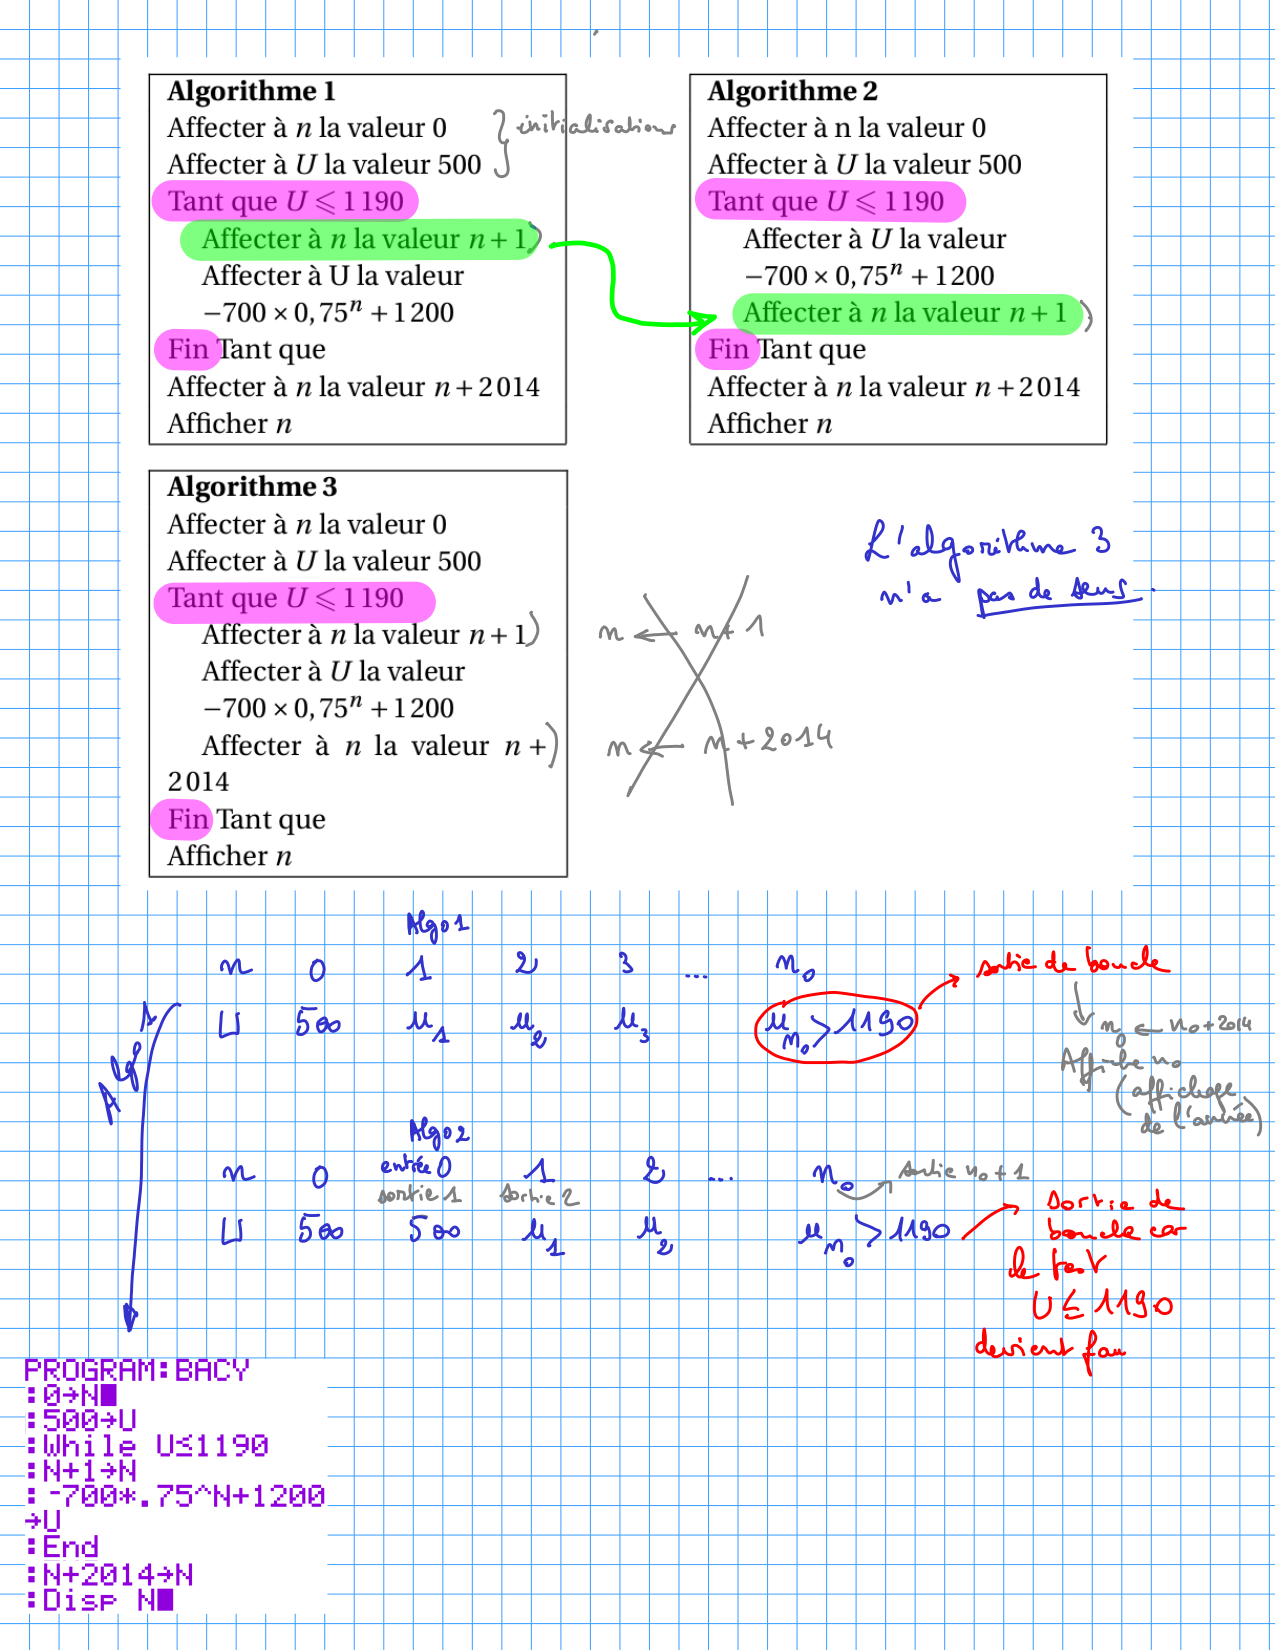 Algorithme 1
Affecter à n la valeur 0
Affecter à U la valeur 500
initialisations
Tant que U ⩽ 1 190
Affecter à n la valeur n + 1
Affecter à U la valeur
−700 × 0,75ⁿ + 1 200
Fin Tant que
Affecter à n la valeur n + 2 014
Afficher n
Algorithme 2
Affecter à n la valeur 0
Affecter à U la valeur 500
Tant que U ⩽ 1 190
Affecter à U la valeur
−700 × 0,75ⁿ + 1 200
Affecter à n la valeur n + 1
Fin Tant que
Affecter à n la valeur n + 2 014
Afficher n
Algorithme 3
Affecter à n la valeur 0
Affecter à U la valeur 500
Tant que U ⩽ 1 190
Affecter à n la valeur n + 1
Affecter à U la valeur
−700 × 0,75ⁿ + 1 200
Affecter à n la valeur n +
2 014
Fin Tant que
Afficher n
n ← n+1
n ← n+2014
L'algorithme 3
n'a pas de sens
Algo 1
n 0 1 2 3 ... n₀
U 500 u₁ u₂ u₃ u_n₀ > 1190
sortie de boucle
n₀ ← n₀+2014
Affiche n₀
(affichage
de l'année)
Algo 1
Algo 2
n 0 entrée 0 1 2 ... n₀ sortie n₀+1
sortie 1 sortie 2
U 500 500 u₁ u₂ u_n₀ > 1190
Sortie de
boucle car
le test
U ≤ 1190
devient faux
PROGRAM:BACY
:0→N
:500→U
:While U≤1190
:N+1→N
:-700*.75^N+1200
→U
:End
:N+2014→N
:Disp N